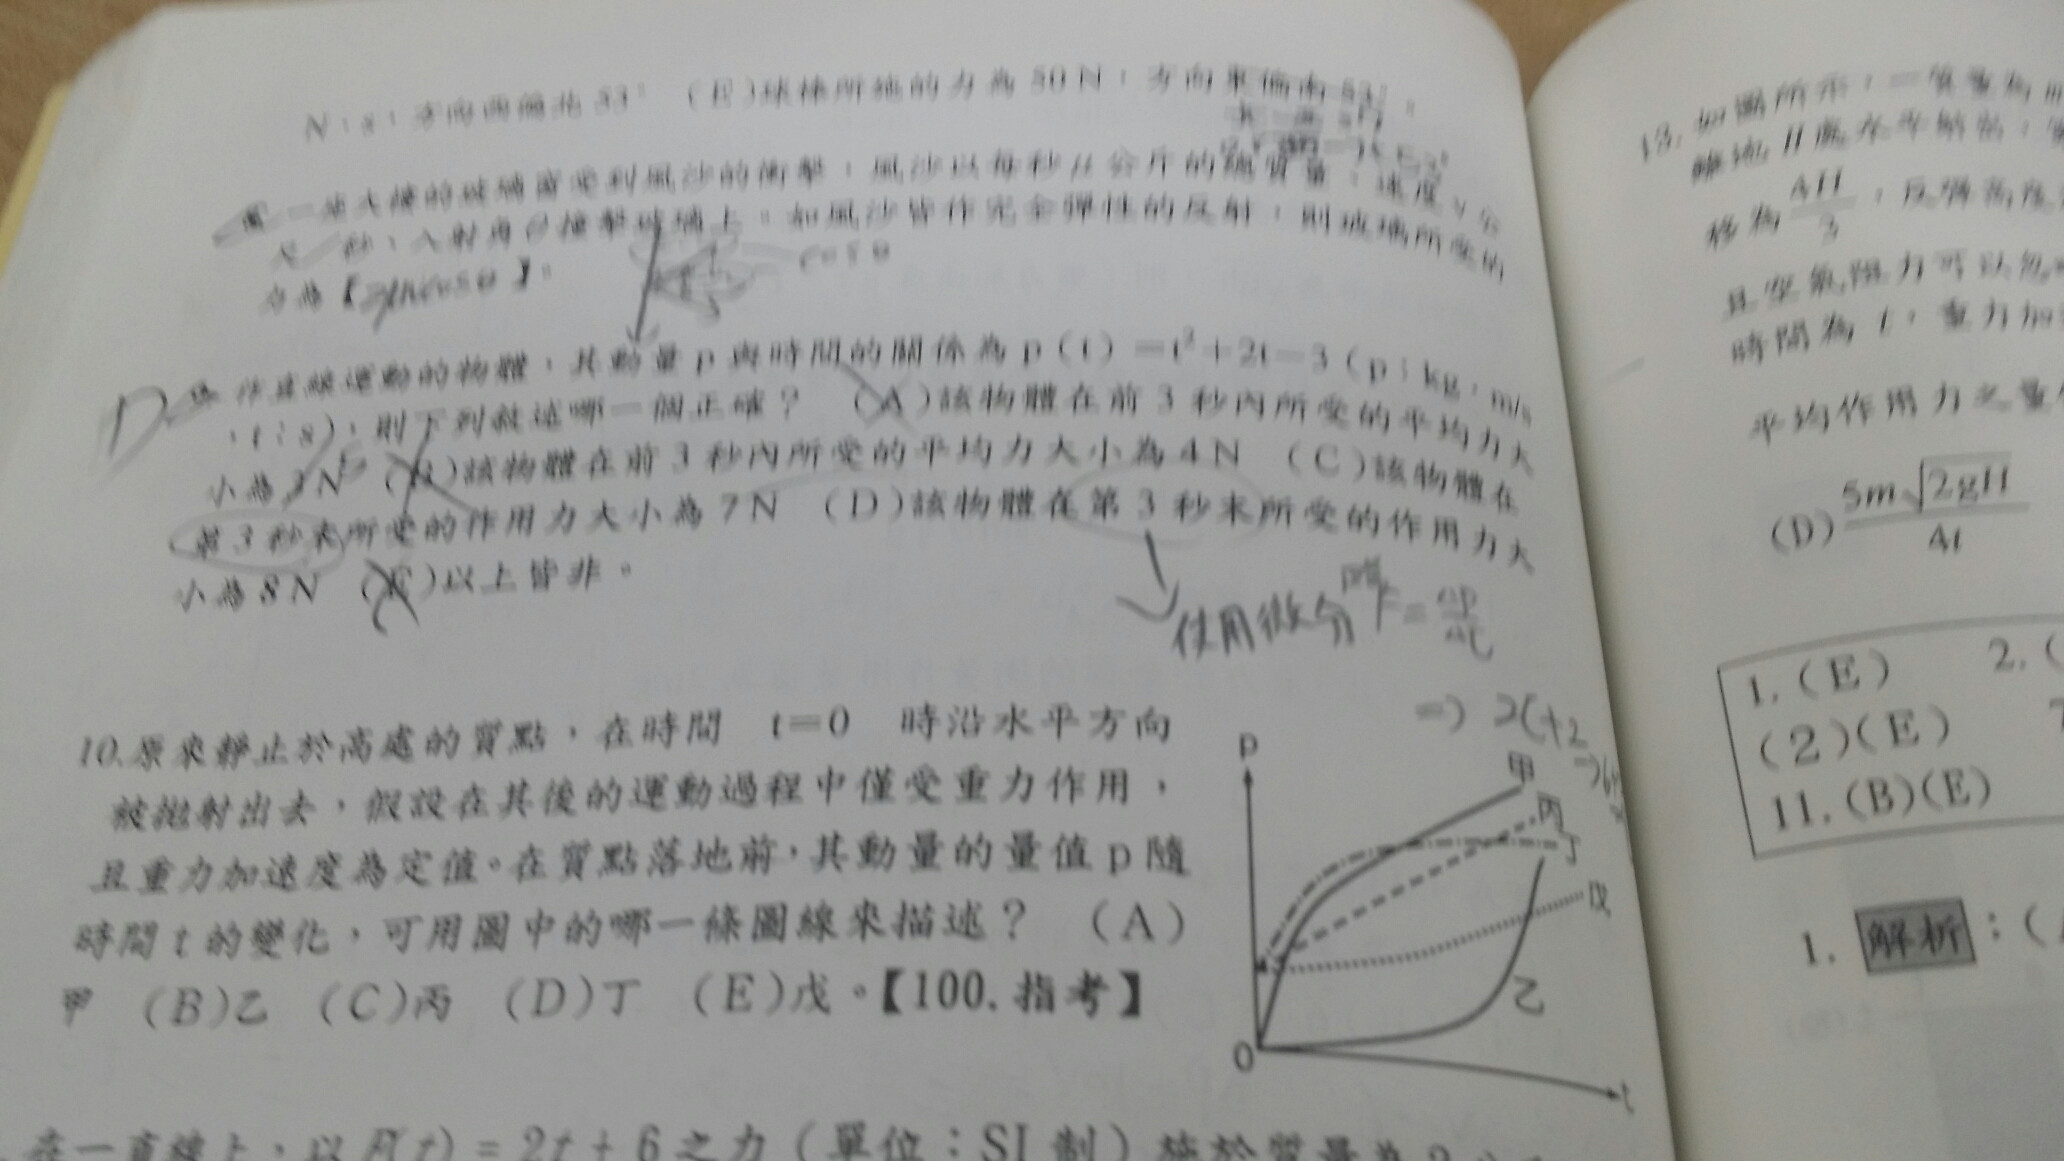 N·s,方向西偏北53° (E)球棒所施的力為50N,方向東偏南53°。
一座大樓的玻璃窗受到風沙的衝擊,風沙以每秒μ公斤的總質量,速度v公
尺/秒,入射角θ撞擊玻璃上。如風沙皆作完全彈性的反射,則玻璃所受的
力為【2μvcosθ】。
cosθ
D
作直線運動的物體,其動量p與時間的關係為p(t)=t²+2t-3(p:kg·m/s
,t:s),則下列敘述哪一個正確? (A)該物體在前3秒內所受的平均力大
小為3N (B)該物體在前3秒內所受的平均力大小為4N (C)該物體在
第3秒末所受的作用力大小為7N (D)該物體在第3秒末所受的作用力大
小為8N (E)以上皆非。
使用微分 F=Δp/Δt
=> 2t+2
10.原來靜止於高處的質點,在時間 t=0 時沿水平方向
被拋射出去,假設在其後的運動過程中僅受重力作用,
且重力加速度為定值。在質點落地前,其動量的量值p隨
時間t的變化,可用圖中的哪一條圖線來描述? (A)
甲 (B)乙 (C)丙 (D)丁 (E)戊。【100.指考】
p
甲
丙
丁
戊
乙
0
t
在一直線上,以F(t)=2t+6之力(單位:SI制)施於質量為2
13.如圖所示,一質量為
離地H處水平
移為4H/3,反彈高度
且空氣阻力可以忽
時間為t,重力加
平均作用力之量
(D) 5m√2gH/4t
1.(E) 2.(
(2)(E) 7
11.(B)(E)
1. 解析:(